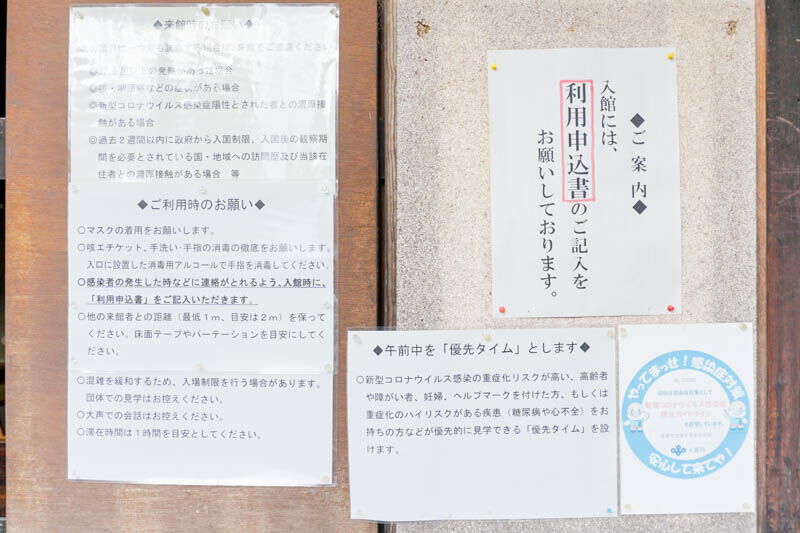 ◆来館時のお願い◆
合
の発熱があった場合
などの症状がある場合
◎新型コロナウイルス感染症陽性とされた者との濃厚接
触がある場合
◎過去２週間以内に政府から入国制限、入国後の観察期
間を必要とされている国・地域への訪問歴及び当該在
住者との濃厚接触がある場合 等
◆ご利用時のお願い◆
○マスクの着用をお願いします。
○咳エチケット、手洗い・手指の消毒の徹底をお願いします。
入口に設置した消毒用アルコールで手指を消毒してください。
○感染者の発生した時などに連絡がとれるよう、入館時に、
「利用申込書」をご記入いただきます。
○他の来館者との距離（最低１ｍ、目安は２ｍ）を保って
ください。床面テープやパーテーションを目安にしてく
ださい。
○混雑を緩和するため、入場制限を行う場合があります。
団体での見学はお控えください。
○大声での会話はお控えください。
○滞在時間は１時間を目安としてください。
◆ご案内◆
入館には、
利用申込書のご記入を
お願いしております。
◆午前中を「優先タイム」とします◆
○新型コロナウイルス感染の重症化リスクが高い、高齢者
や障がい者、妊婦、ヘルプマークを付けた方、もしくは
重症化のハイリスクがある疾患（糖尿病や心不全）をお
持ちの方などが優先的に見学できる「優先タイム」を設
けます。
やってまっせ！感染症対策
新型コロナウイルス感染症
防止ガイドライン
を遵守しています。
大阪府
安心して来てや！